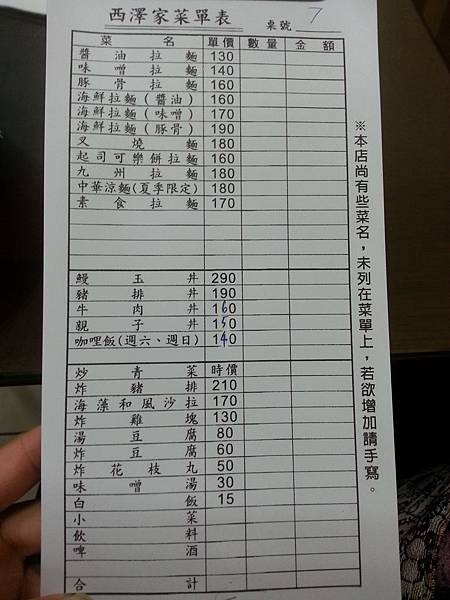 西澤家菜單表 桌號 7
菜名 單價 數量 金額
醬油拉麵 130
味噌拉麵 140
豚骨拉麵 160
海鮮拉麵(醬油) 160
海鮮拉麵(味噌) 170
海鮮拉麵(豚骨) 190
叉燒麵 180
起司可樂餅拉麵 160
九州拉麵 180
中華涼麵(夏季限定) 180
素食拉麵 170
鰻玉丼 290
豬排丼 190
牛肉丼 160
親子丼 150
咖哩飯(週六、週日) 140
炒青菜 時價
炸豬排 210
海藻和風沙拉 170
炸雞塊 130
湯豆腐 80
炸豆腐 60
炸花枝丸 50
味噌湯 30
白飯 15
小菜
飲料
啤酒
合計
※本店尚有些菜名，未列在菜單上，若欲增加請手寫。